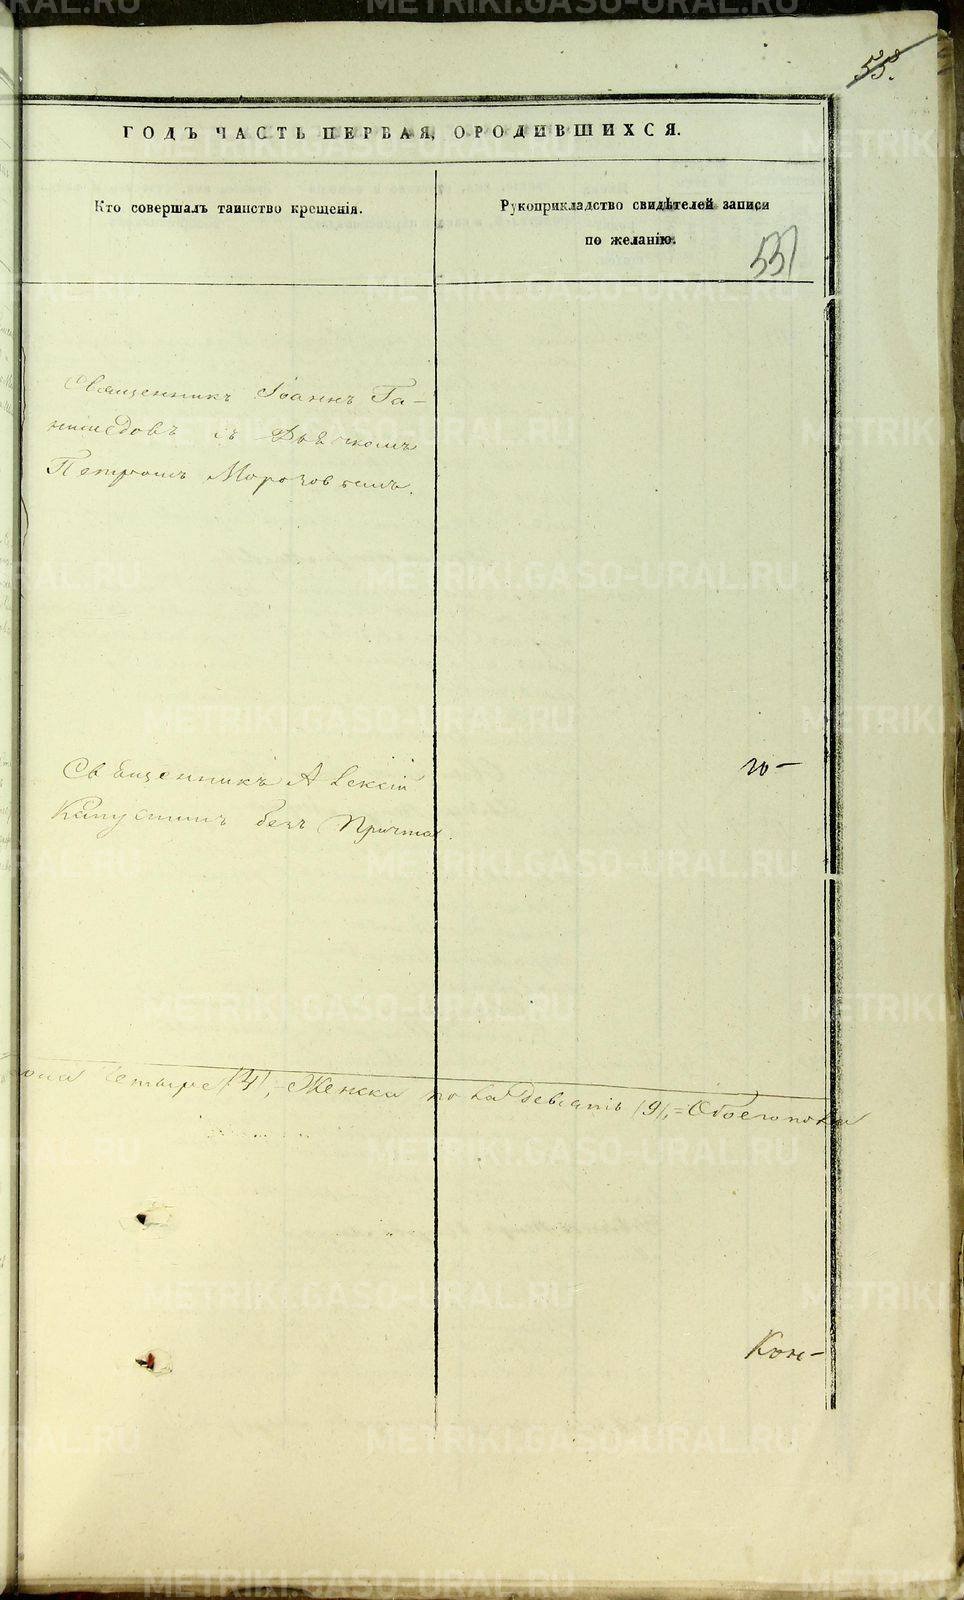 55.
ГОДЪ ЧАСТЬ ПЕРВАЯ, О РОДИВШИХСЯ.
Кто совершалъ таинство крещенія.
Рукоприкладство свидѣтелей записи
по желанію.
557
Священникъ Іоаннъ Га-
съ Дьячкомъ
Петромъ Морозовымъ.
Священникъ Алексій
Капустинъ безъ Причта.
го-
пола четыре /4/, Женска пола Девять /9/,=Обоего пола
Кон-
METRIKI.GASO-URAL.RU